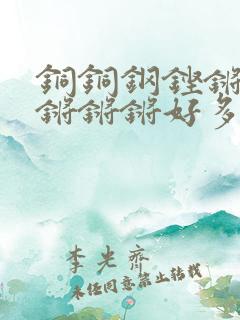 銅銅鋼鏗鏘
鏘鏘鏘好多
李光齊
未经同意禁止转载